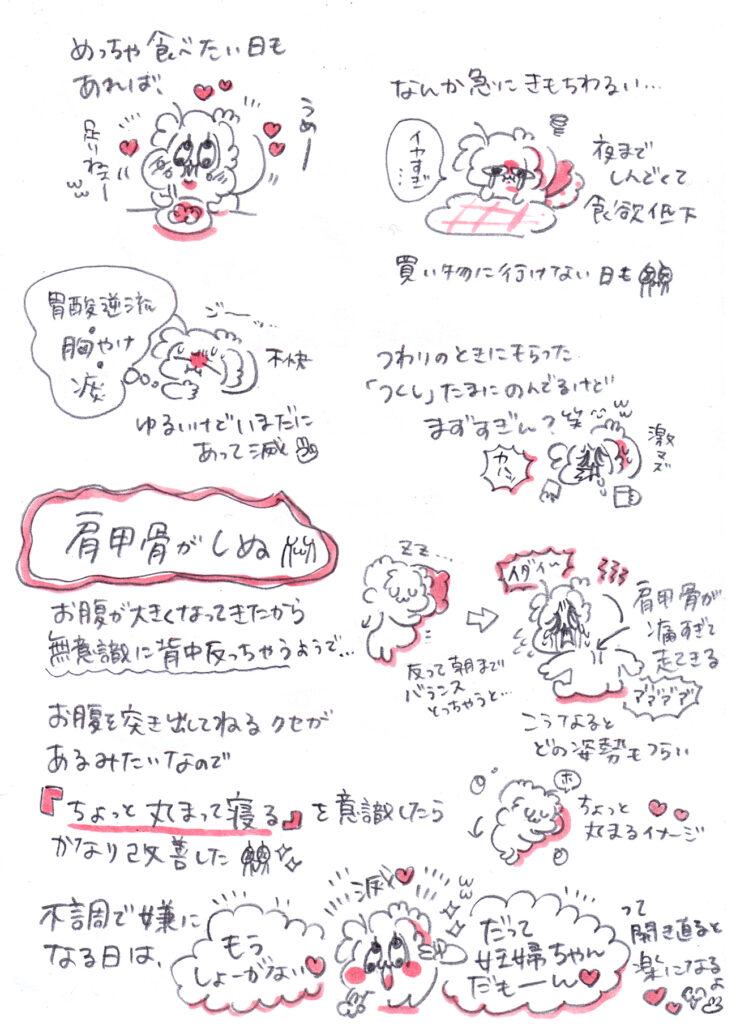 めっちゃ食べたい日も
あれば、
うめー
足りねェー
ww
なんか急にきもちわるい…
イヤすぎ…
夜まで
しんどくて
食欲低下
買い物に行けない日も
胃酸逆流
胸やけ
痰
ジ〜ッ…
不快
ゆるいけどいまだに
あって滅
つわりのときにもらった
「つくし」たまにのんでるけど
まずすぎん？笑
ww
カハッ
激マズ
肩甲骨がしぬ
お腹が大きくなってきたから
無意識に背中反っちゃうようで…
ZZ…
反って朝まで
バランス
とっちゃうと…
イダイ〜
肩甲骨が
痛すぎて
走てきる
アアアアア
こうなると
どの姿勢もつらい
お腹を突き出してねるクセが
あるみたいなので
『ちょっと丸まって寝る』を意識したら
かなり改善した
ホ
ちょっと
丸まるイメージ
不調で嫌に
なる日は、
もう
しょーがない
滅
ww
だって
妊婦ちゃん
だもーん
って
開き直ると
楽になるよ